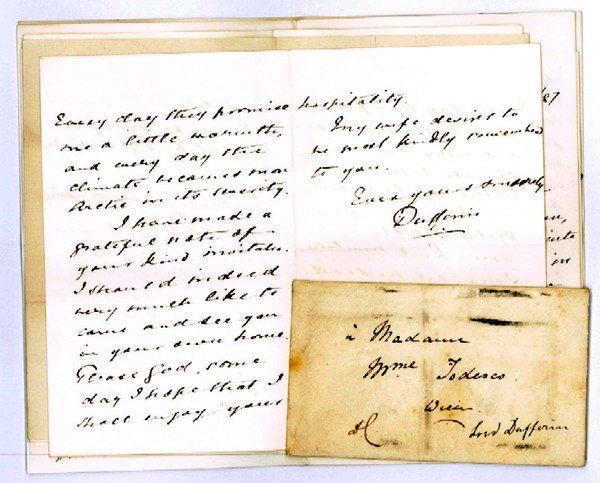 Every day they promise
me a little warmth,
and every day the
climate becomes more
Arctic in its severity.
I have made a
grateful note of
your kind invitation.
I should indeed
very much like to
come and see you
in your own home.
Please God, some
day I hope that I
shall enjoy your
hospitality.
My wife desires to
be most kindly remembered
to you.
Ever yours sincerely
Dufferin
à Madame
Mme Todesco
Wien
Lord Dufferin